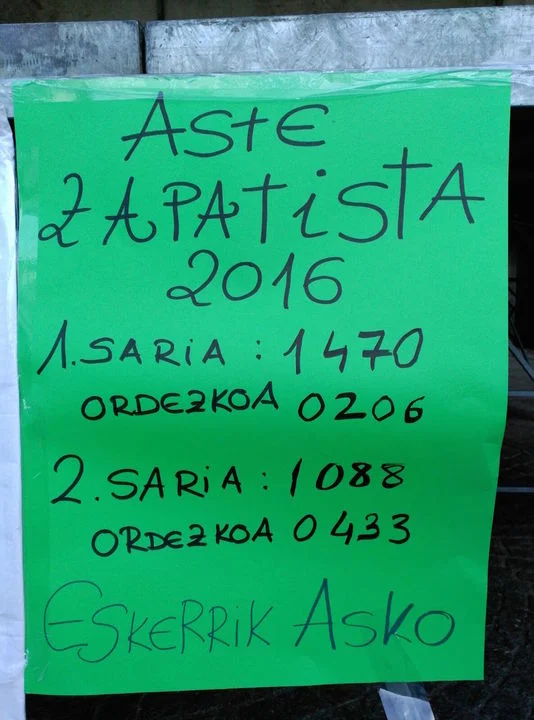 ASTE
ZAPATISTA
2016
1. SARIA : 1470
ORDEZKOA 0206
2. SARIA : 1088
ORDEZKOA 0433
ESKERRIK ASKO